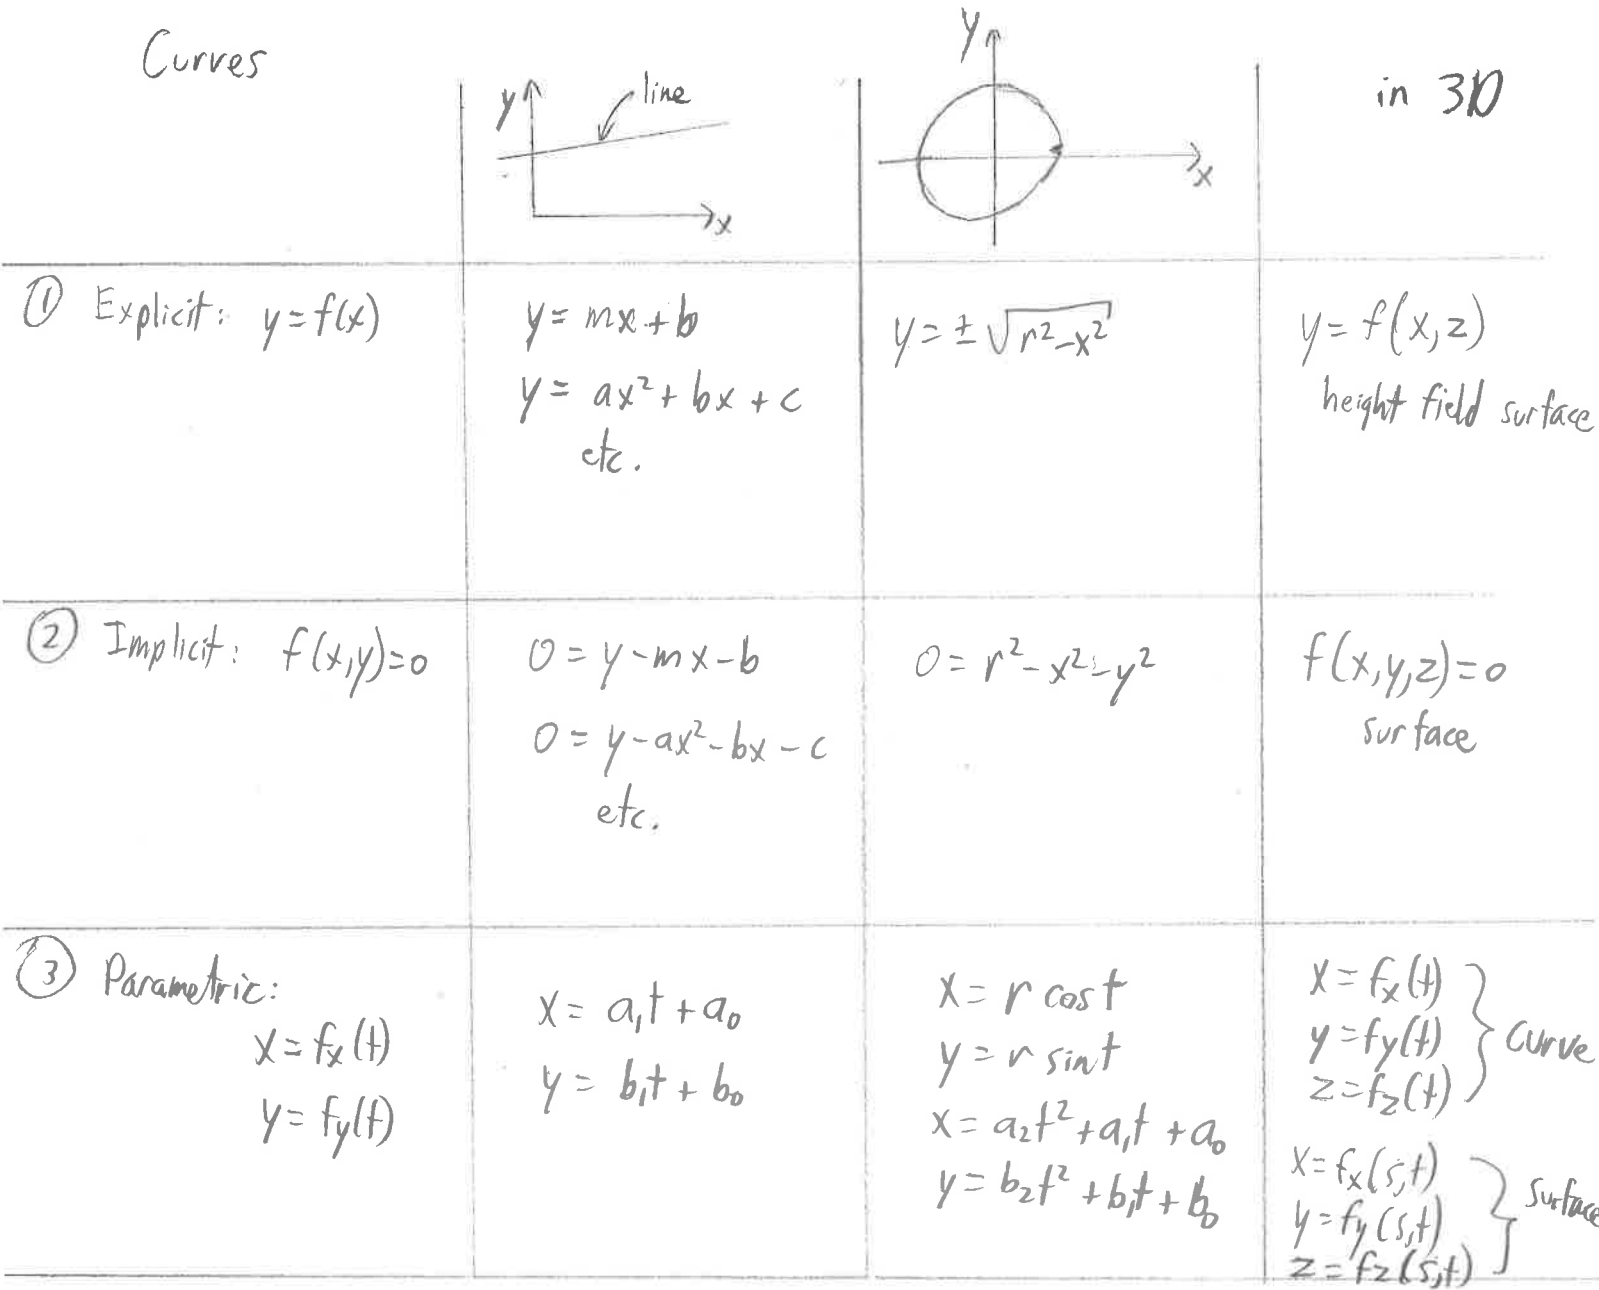 Curves
y
line
x
y
x
in 3D
① Explicit: y = f(x)
y = mx + b
y = ax² + bx + c
etc.
y = ± √(r² - x²)
y = f(x, z)
height field surface
② Implicit: f(x,y)=0
0 = y - mx - b
0 = y - ax² - bx - c
etc.
0 = r² - x² - y²
f(x,y,z)=0
surface
③ Parametric:
x = fₓ(t)
y = fy(t)
x = a₁t + a₀
y = b₁t + b₀
x = r cos t
y = r sin t
x = a₂t² + a₁t + a₀
y = b₂t² + b₁t + b₀
x = fₓ(t)
y = fy(t)
z = fz(t)
curve
x = fₓ(s,t)
y = fy(s,t)
z = fz(s,t)
surface